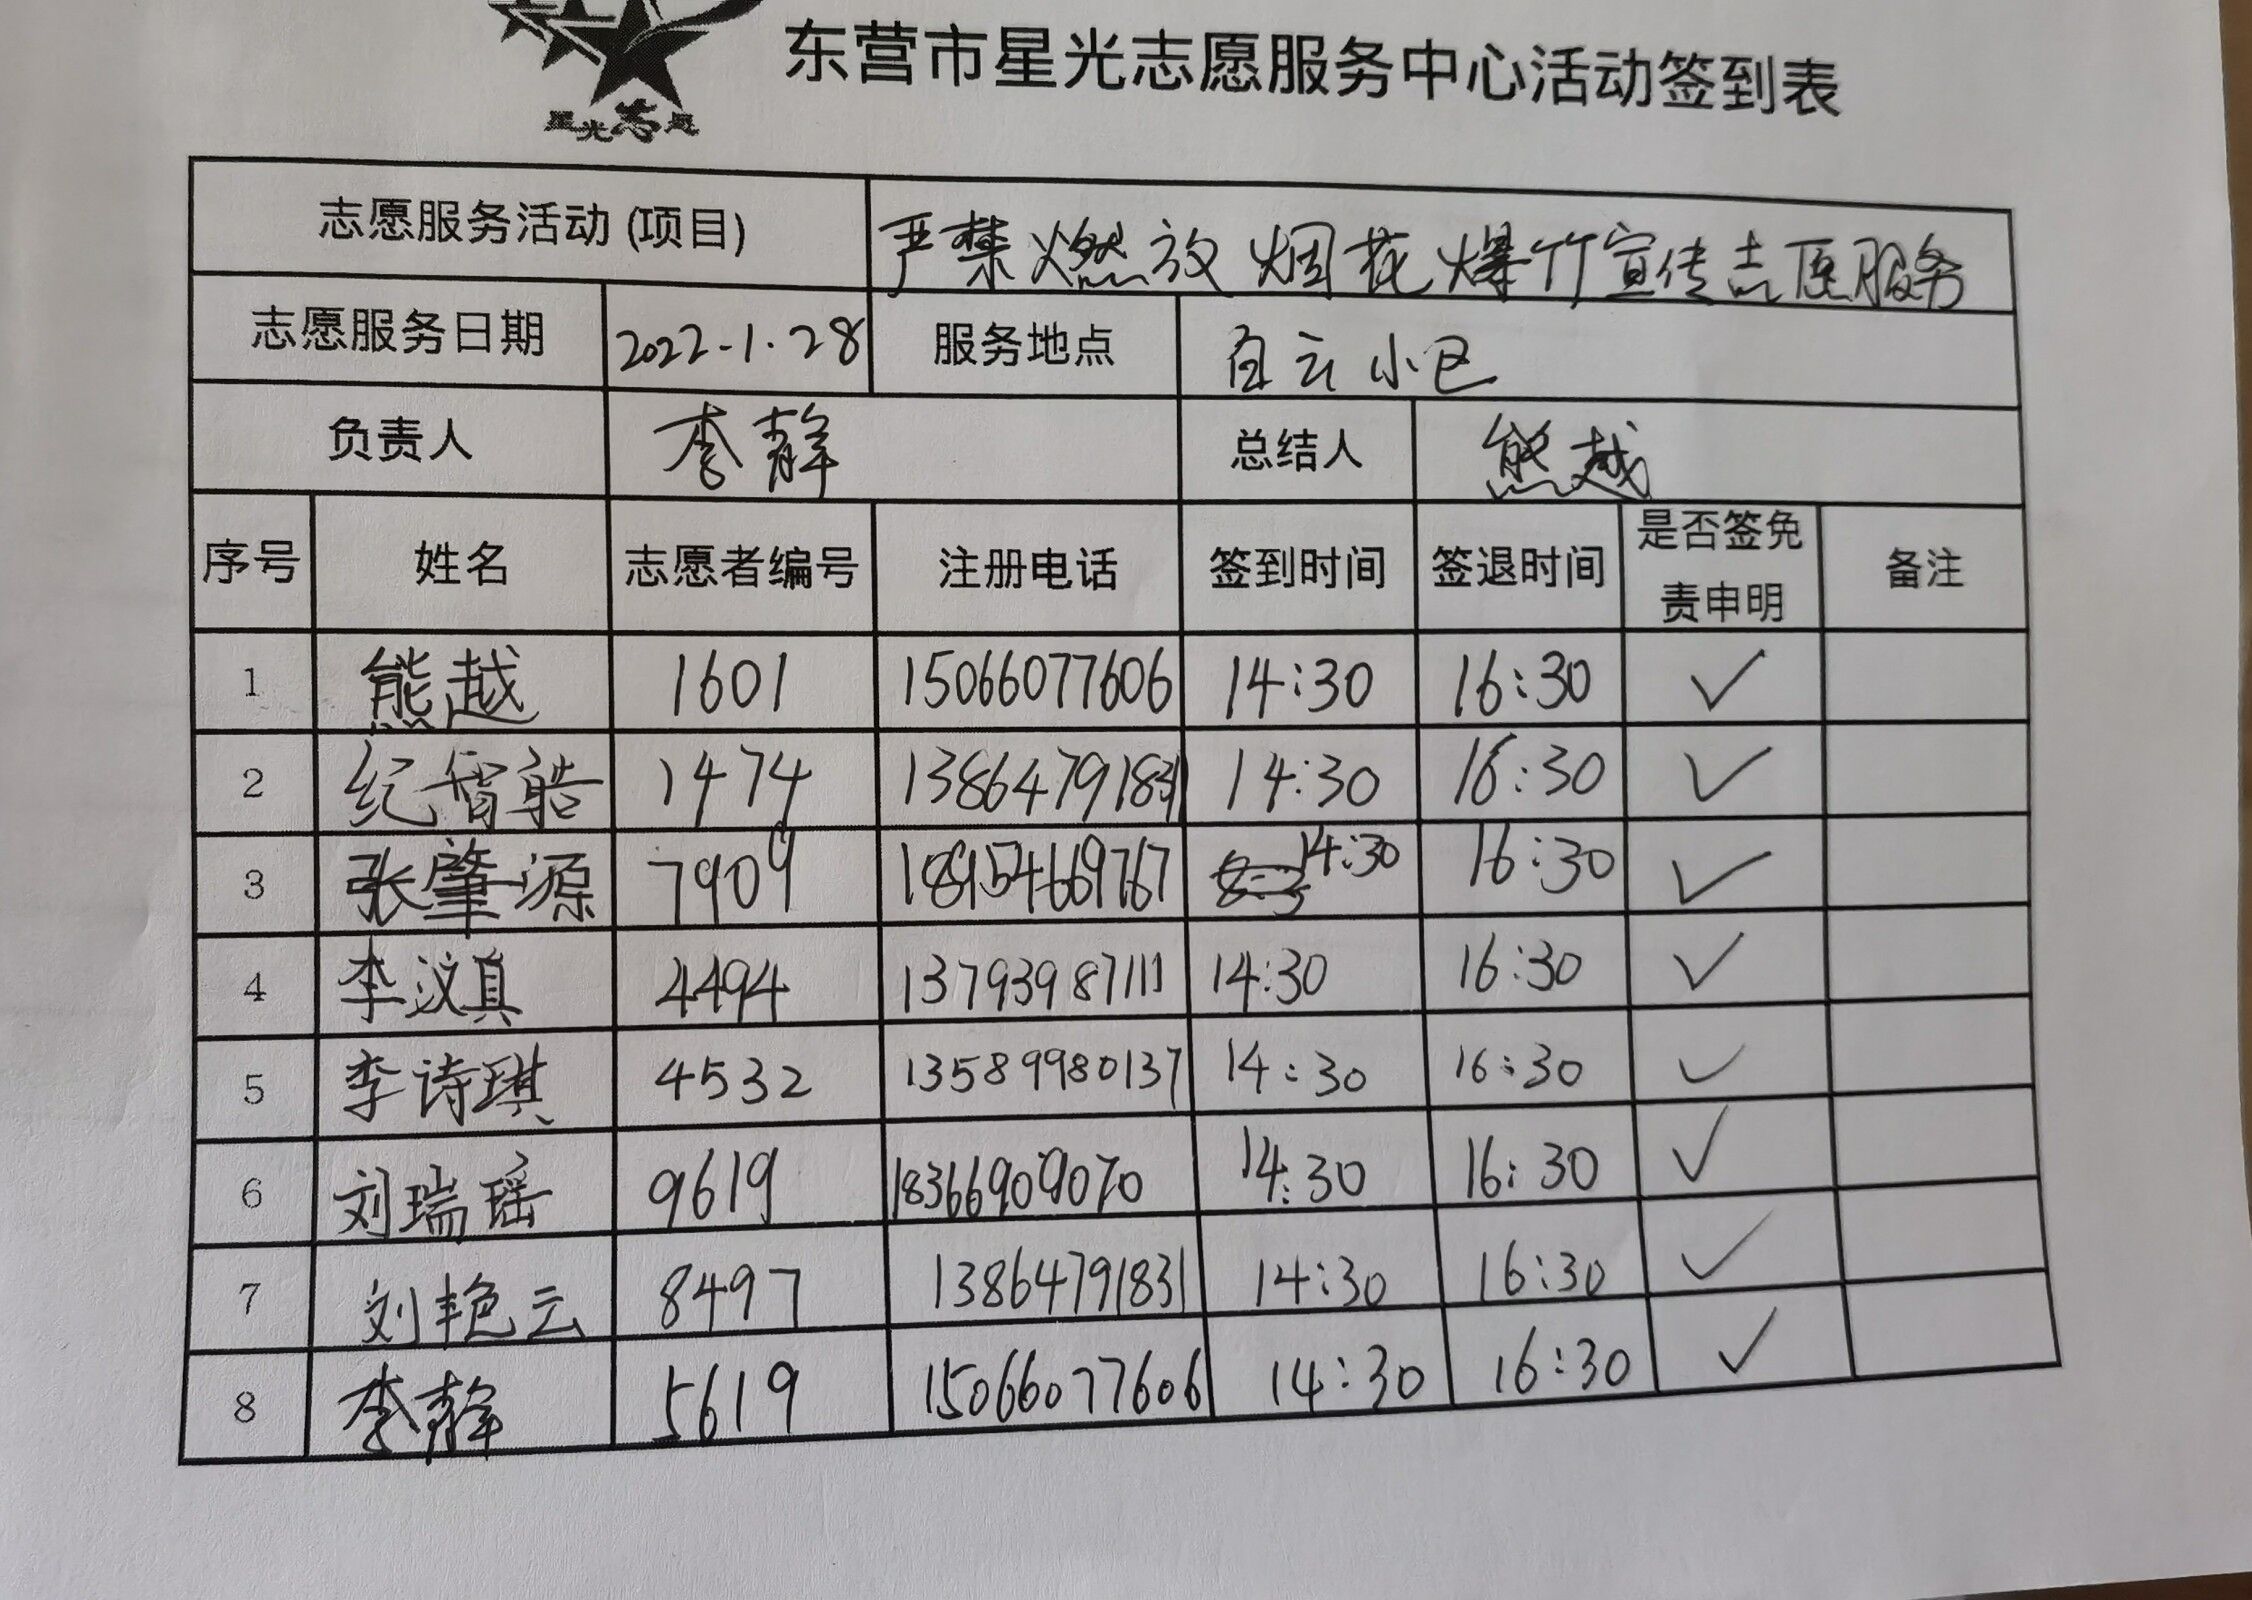 东营市星光志愿服务中心活动签到表
星光志愿
志愿服务活动(项目) 严禁燃放烟花爆竹宣传志愿服务
志愿服务日期 2022.1.28 服务地点 白云小区
负责人 李静 总结人 熊越
序号 姓名 志愿者编号 注册电话 签到时间 签退时间 是否签免责申明 备注
1 熊越 1601 15066077606 14:30 16:30 ✓
2 纪皓 1474 13864791831 14:30 16:30 ✓
3 张肇源 7909 18954669767 14:30 16:30 ✓
4 李议真 4494 13793987111 14:30 16:30 ✓
5 李诗琪 4532 13589980137 14:30 16:30 ✓
6 刘瑞瑶 9619 18366909070 14:30 16:30 ✓
7 刘艳云 8497 13864791831 14:30 16:30 ✓
8 李静 5619 15066077606 14:30 16:30 ✓